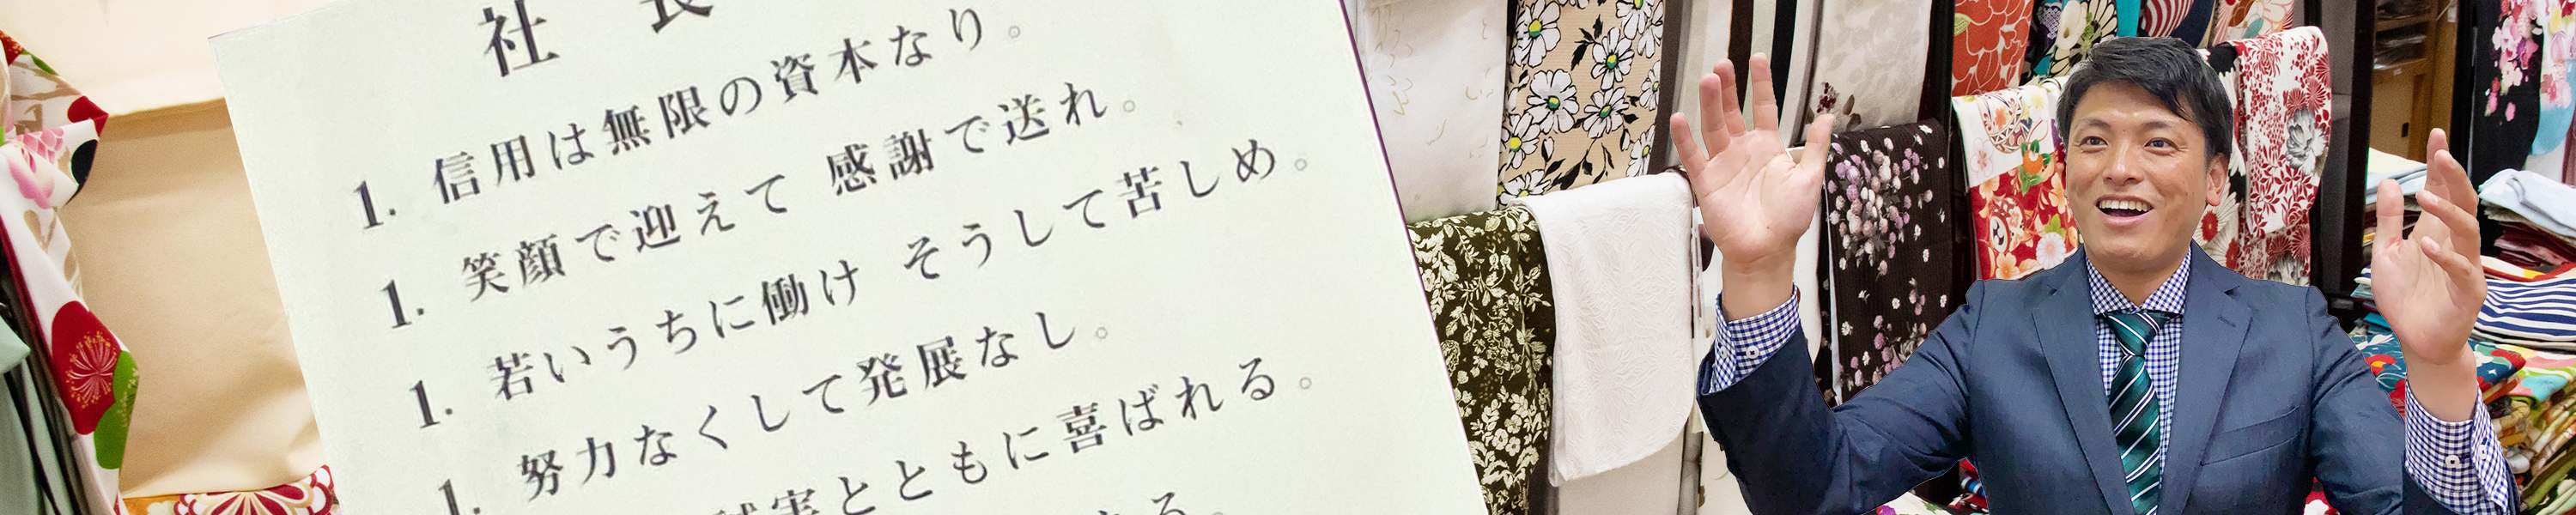 社 長
1. 信用は無限の資本なり。
1. 笑顔で迎えて 感謝で送れ。
1. 若いうちに働け そうして苦しめ。
1. 努力なくして発展なし。
誠実とともに喜ばれる。
る。